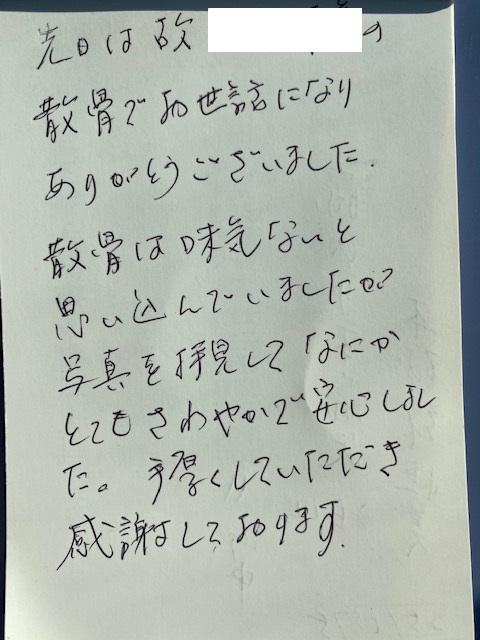 先日は故 の
散骨でお世話になり
ありがとうございました.
散骨は味気ないと
思い込んでいましたが
写真を拝見してなにか
とてもさわやかで安心しまし
た。手厚くしていただき
感謝しております.